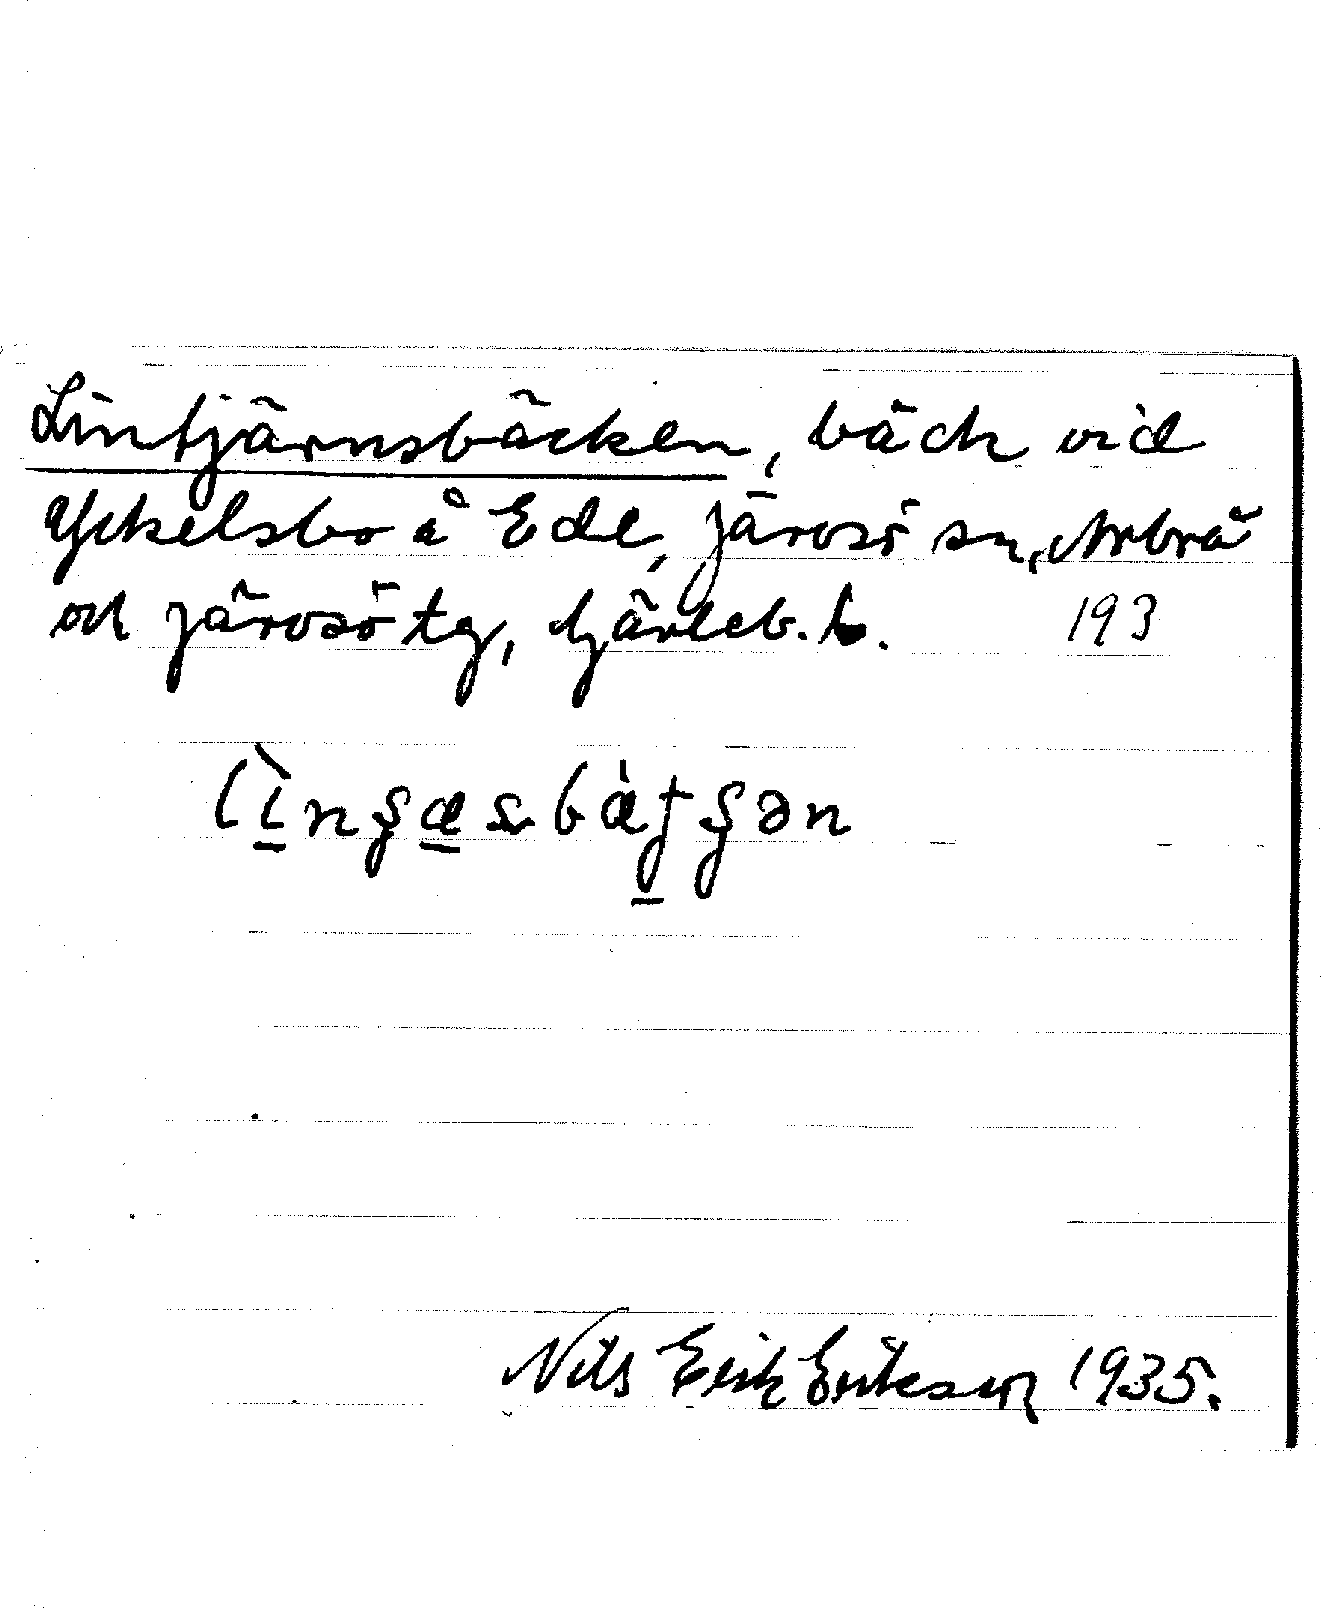 Lintjärnsbäcken, bäck vid
Yckelsbo å Ede, Järvsö sn, Arbrå
och Järvsö tg, Gävleb. l. 193
Nils Erik Eriksson 1935.